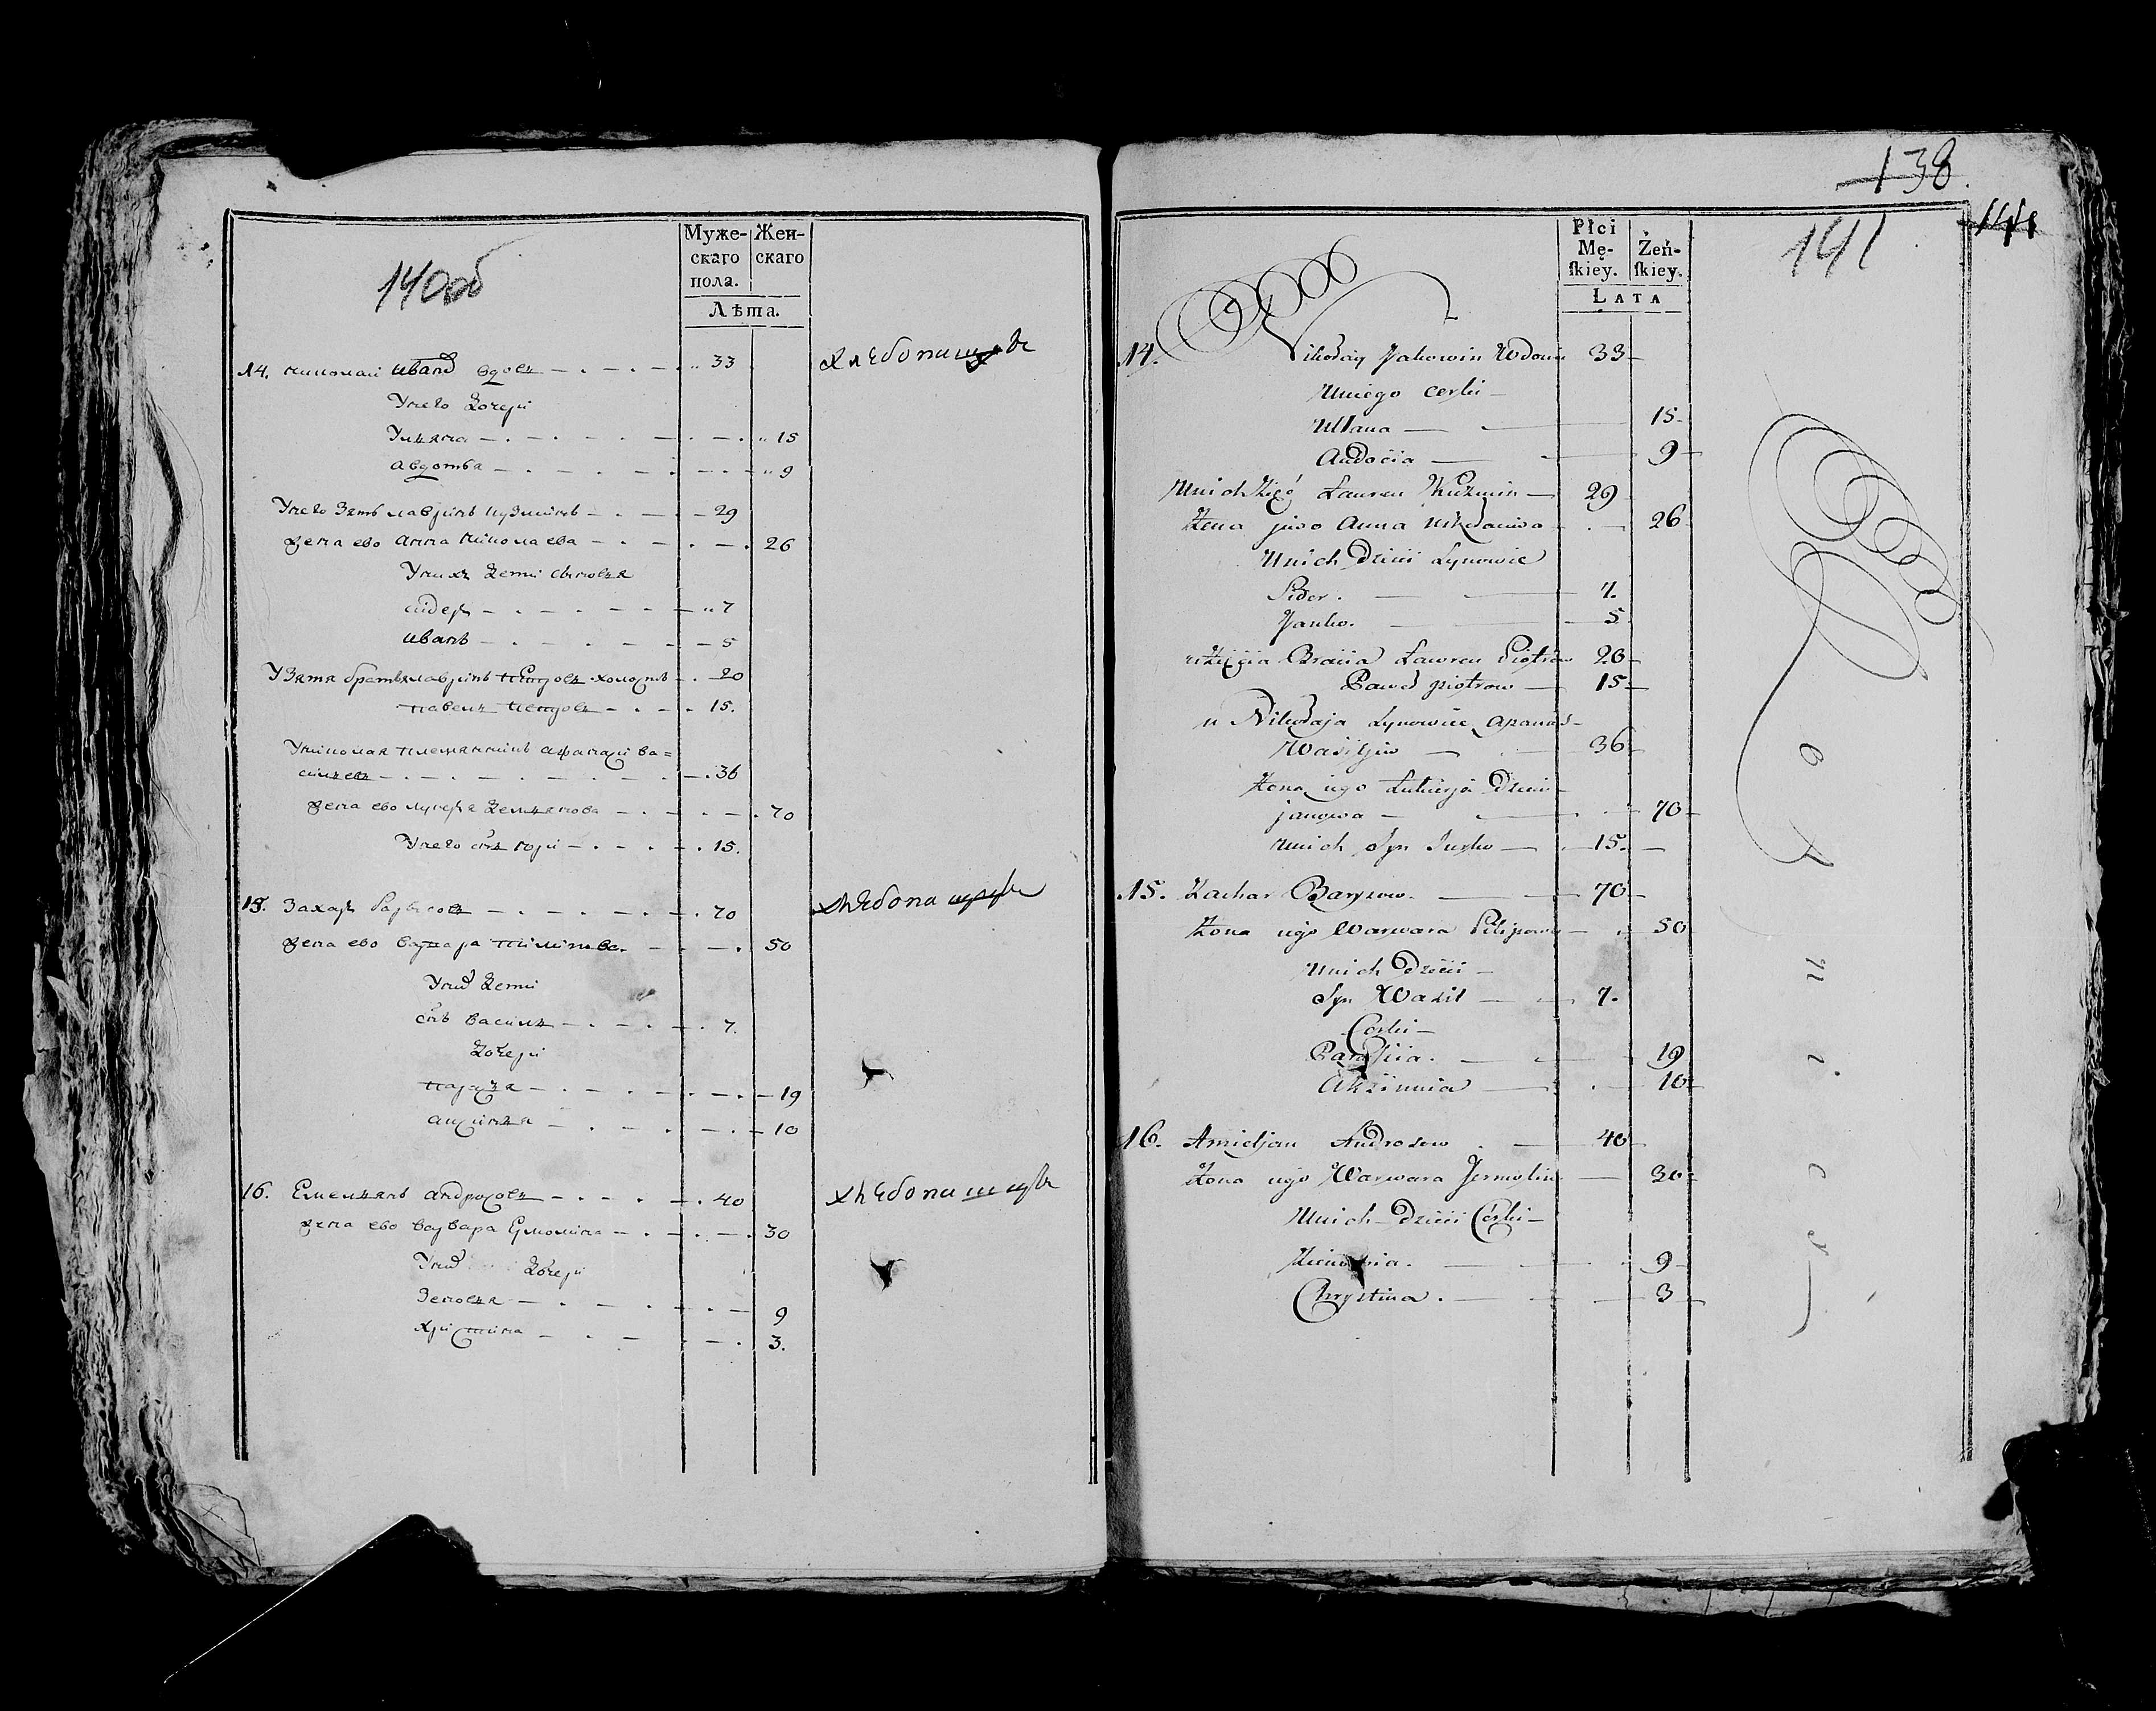 140об
Муже-
скаго
пола.
Жен-
скаго
Лѣта.
14. николай вдовъ 33 хлебопашецъ
У него дочери
Ульяна 15
авдотья 9
У него зять лавринъ кузминъ 29
жена ево анна николаева 26
У нихъ дети сыновья
сидеръ 7
иванъ 5
У зятя братья лавринъ петровъ холостъ 20
павелъ петровъ 15.
У николая племянникъ афанасий ва=
сильевъ 36
жена ево лукерья демьянова 70
У него снъ юри 15.
15. Захаръ барысовъ 70 хлебопашецъ
жена ево варвара пилипова 50
У них дети
снъ василь 7.
дочери
19
аксинья 10
16. Емельянъ андросовъ 40 хлебопашецъ
жена ево варвара Ермолина 30
У них дочери
Зеновья 9
христина 3.
138.
141
141
Płci
Mę-
ſkiey.
Żeń-
ſkiey.
LATA
14. Nikołay Jakowin Wdowiec 33
Uniego corki
Ullana 15
Audocia 9
Unich Zięć Łauren Kuzmin 29
Żena jiwo Anna Nikołaiwa 26
Unich Dzieci Synowie
Sidor. 7.
Janko. 5
u Zięcia Bracia Ławren Piotrow 20
Paweł piotrow 15
u Nikołaja Synowiec Apanas
Wasiljiw 36
Żona iego Łukierja Dzem-
janowa 70
unich Syn Jurko 15.
15. Zachar Barysow. 70
Żona iego Warwara Pilipowa 50
Unich Dzieci
Syn Wasil 7.
Corki
Paraskia. 19
Akzinnia 10
16. Amieljan Androsow 40
Żona iego Warwara Jermolin 30
Unich Dzieci Corki
Zienowia. 9
Chrystina. 3
Rolnicy